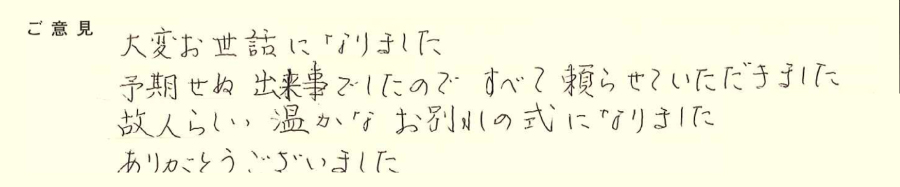 ご意見
大変お世話になりました
予期せぬ出来事でしたので すべて頼らせていただきました
故人らしい 温かな お別れの式になりました
ありがとうございました